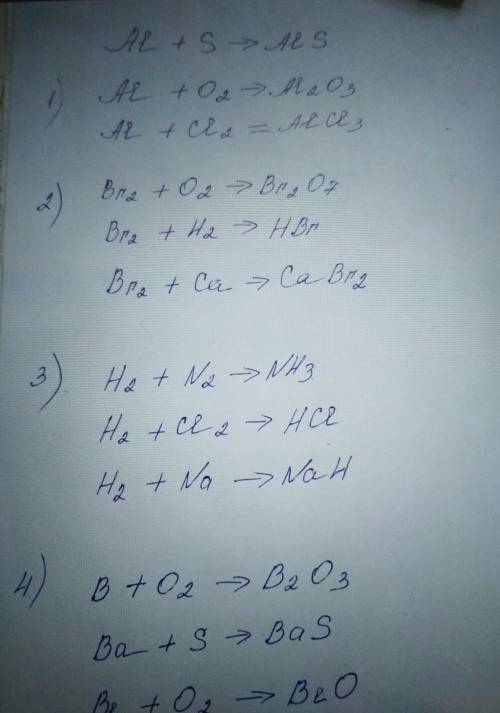 Al + S → AlS
1) Al + O2 → Al2O3
Al + Cl2 = AlCl3
2) Br2 + O2 → Br2O7
Br2 + H2 → HBr
Br2 + Ca → CaBr2
3) H2 + N2 → NH3
H2 + Cl2 → HCl
H2 + Na → NaH
4) B + O2 → B2O3
Ba + S → BaS
Be + O2 → BeO